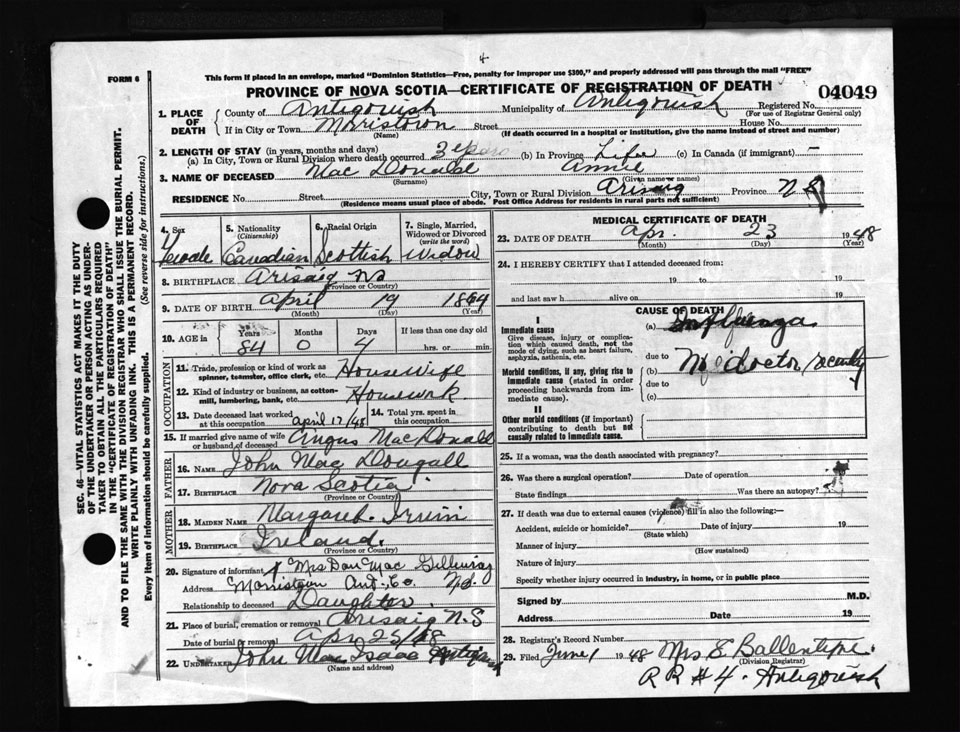 4
FORM 6
This form if placed in an envelope, marked "Dominion Statistics—Free, penalty for improper use $300," and properly addressed will pass through the mail "FREE"
PROVINCE OF NOVA SCOTIA—CERTIFICATE OF REGISTRATION OF DEATH
04049
1. PLACE OF DEATH
County of Antigonish Municipality of Antigonish Registered No.
(For use of Registrar General only)
If in City or Town Morristown Street House No.
(Name) (If death occurred in a hospital or institution, give the name instead of street and number)
2. LENGTH OF STAY (in years, months and days)
(a) In City, Town or Rural Division where death occurred 3 years (b) In Province Life (c) In Canada (if immigrant) —
3. NAME OF DECEASED Mac Donald Annie
(Surname) (Given name or names)
RESIDENCE No. Street City, Town or Rural Division Arisaig Province N S
(Residence means usual place of abode. Post Office Address for residents in rural parts not sufficient)
4. Sex Female
5. Nationality (Citizenship) Canadian
6. Racial Origin Scottish
7. Single, Married, Widowed or Divorced (write the word) Widow
8. BIRTHPLACE Arisaig NS
(Province or Country)
9. DATE OF BIRTH April 19 1864
(Month) (Day) (Year)
10. AGE in Years Months Days If less than one day old
84 0 4 hrs. or min.
OCCUPATION
11. Trade, profession or kind of work as spinner, teamster, office clerk, etc. Housewife
12. Kind of industry or business, as cotton-mill, lumbering, bank, etc. Housework
13. Date deceased last worked at this occupation April 17/48
14. Total yrs. spent in this occupation
15. If married give name of wife or husband of deceased Angus MacDonald
FATHER
16. NAME John Mac Dougall
17. BIRTHPLACE Nova Scotia
(Province or Country)
MOTHER
18. MAIDEN NAME Margaret Irwin
19. BIRTHPLACE Ireland.
(Province or Country)
20. Signature of informant Mrs Dan Mac Gillivray
Address Morristown Ant. Co. N.S.
Relationship to deceased Daughter
21. Place of burial, cremation or removal Arisaig N.S
Date of burial or removal Apr 25/48
22. Undertaker John Mac Isaac Antigonish
(Name and address)
MEDICAL CERTIFICATE OF DEATH
23. DATE OF DEATH Apr. 23 1948
(Month) (Day) (Year)
24. I HEREBY CERTIFY that I attended deceased from:
19 to 19
and last saw h alive on 19
CAUSE OF DEATH
I
Immediate cause
Give disease, injury or complication which caused death, not the mode of dying, such as heart failure, asphyxia, asthenia, etc.
(a) Influenza
due to
Morbid conditions, if any, giving rise to immediate cause (stated in order proceeding backwards from immediate cause).
(b) No doctor
due to
(c)
II
Other morbid conditions (if important) contributing to death but not causally related to immediate cause.
25. If a woman, was the death associated with pregnancy?
26. Was there a surgical operation? Date of operation
State findings Was there an autopsy?
27. If death was due to external causes (violence) fill in also the following:—
Accident, suicide or homicide? Date of injury 19
(State which)
Manner of injury
(How sustained)
Nature of injury
Specify whether injury occurred in industry, in home, or in public place
Signed by M.D.
Address Date 19
28. Registrar's Record Number
29. Filed June 1 1948 Mrs E Ballentyne.
(Division Registrar)
R R #4. Antigonish
SEC. 46—VITAL STATISTICS ACT MAKES IT THE DUTY
OF THE UNDERTAKER OR PERSON ACTING AS UNDER-
TAKER TO OBTAIN ALL THE PARTICULARS REQUIRED
IN THE "CERTIFICATE OF REGISTRATION OF DEATH"
AND TO FILE THE SAME WITH THE DIVISION REGISTRAR WHO SHALL ISSUE THE BURIAL PERMIT.
WRITE PLAINLY WITH UNFADING INK. THIS IS A PERMANENT RECORD.
Every item of information should be carefully supplied. (See reverse side for instructions.)